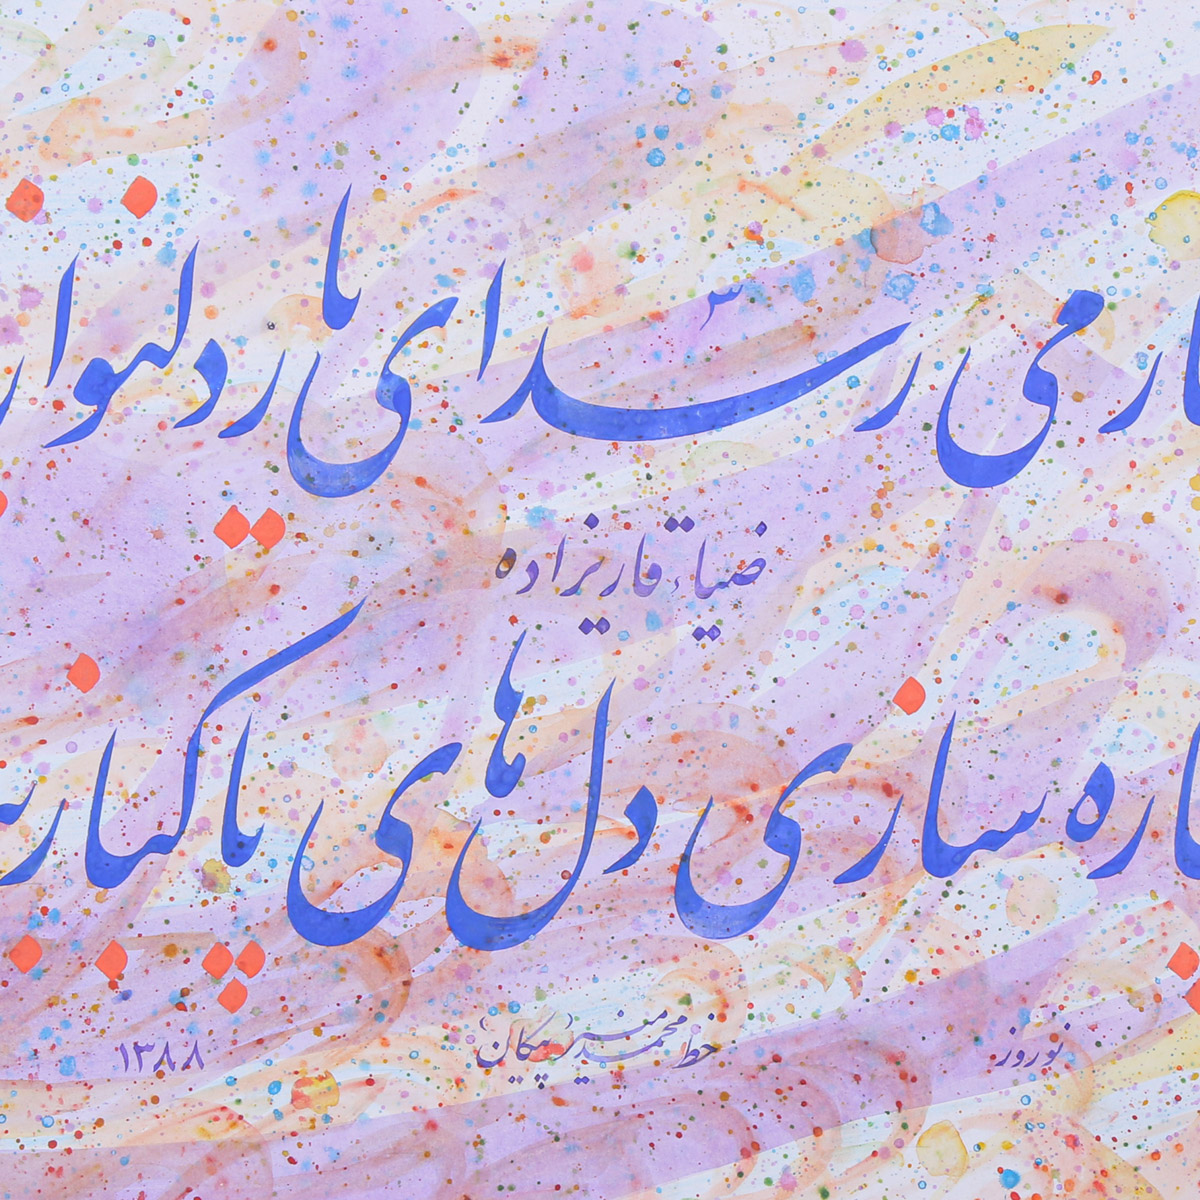 ار می رسد ای یار دلنواز
ضیاء قاریزاده
چاره سازی دل های پاکباز
نوروز خط محمد منیر «پیکان» ۱۳۸۸